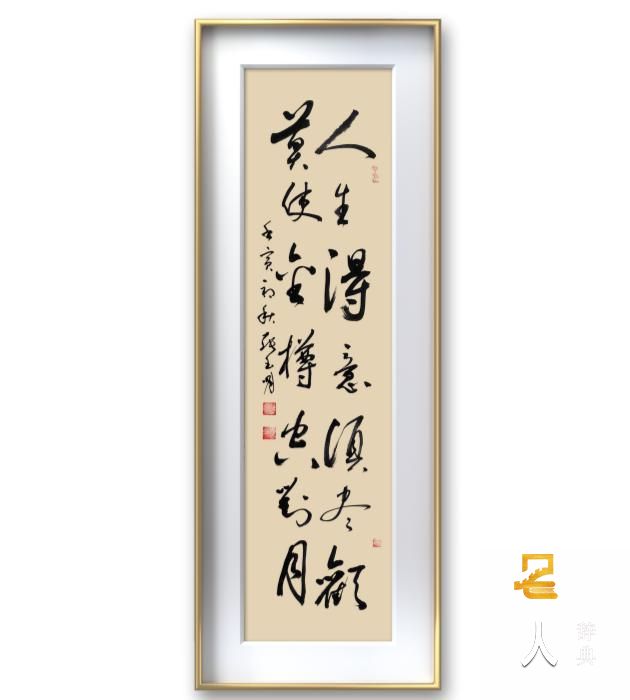 人生得意須尽歡
莫使金樽空對月
壬寅初秋張玉
名人
辞典